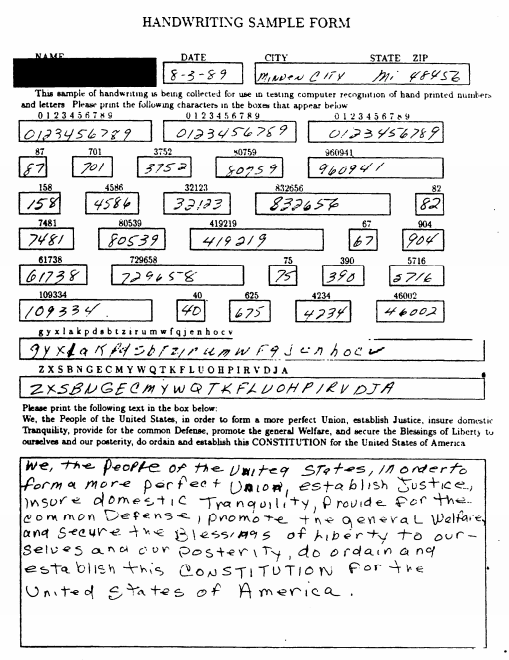 HANDWRITING SAMPLE FORM
NAME DATE CITY STATE ZIP
8-3-89 MINDEN CITY Mi 48456
This sample of handwriting is being collected for use in testing computer recognition of hand printed numbers
and letters Please print the following characters in the boxes that appear below
0 1 2 3 4 5 6 7 8 9 0 1 2 3 4 5 6 7 8 9 0 1 2 3 4 5 6 7 8 9
0123456789 0123456789 0123456789
87 701 3752 80759 960941
87 701 3752 80759 960941
158 4586 32123 832656 82
158 4586 32123 832656 82
7481 80539 419219 67 904
7481 80539 419219 67 904
61738 729658 75 390 5716
61738 729658 75 390 5716
109334 40 625 4234 46002
109334 40 675 4234 46002
g y x l a k p d s b t z i r u m w f q j e n h o c v
gyxlakpdsbtzirumwfqjenhocv
Z X S B N G E C M Y W Q T K F L U O H P I R V D J A
ZXSBNGECMYWQTKFLUOHPIRVDJA
Please print the following text in the box below:
We, the People of the United States, in order to form a more perfect Union, establish Justice, insure domestic
Tranquility, provide for the common Defense, promote the general Welfare, and secure the Blessings of Liberty to
ourselves and our posterity, do ordain and establish this CONSTITUTION for the United States of America
We, the People of the United States, in order to
form a more perfect Union, establish Justice,
insure domestic Tranquility, Provide for the
common Defense, promote the general Welfare,
and secure the Blessings of Liberty to our-
selves and our posterity, do ordain and
establish this CONSTITUTION for the
United States of America.